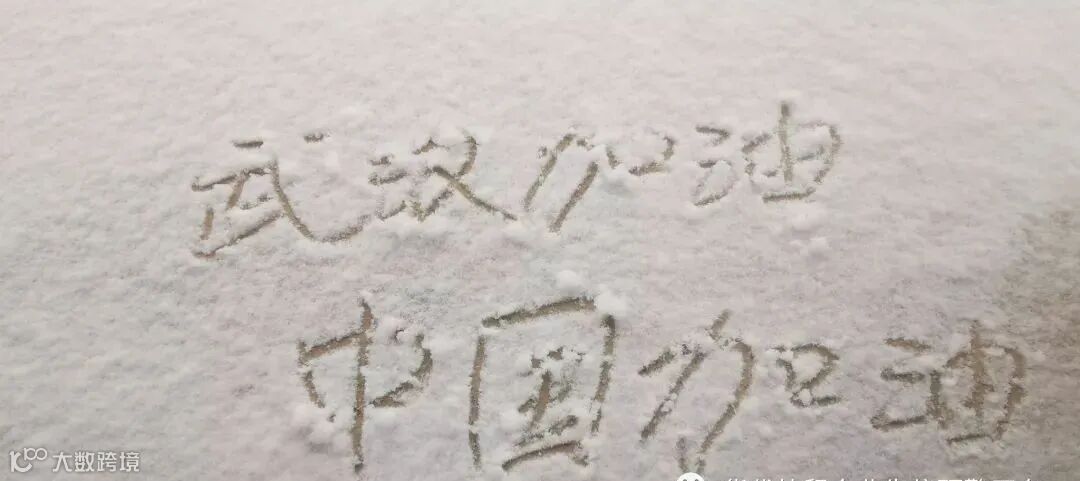 武汉加油
中国加油
大数跨境